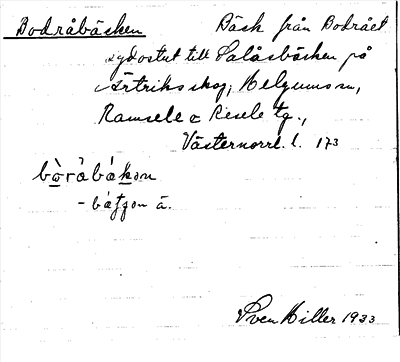 Bodråbäcken Bäck från Bodrået
sydostut till Salåsbäcken på
Ärtriks skog, Helgums sn,
Ramsele & Resele tg.,
Västernorrl. l. 173
bòråbákọn
- båtjọn ä.
Sven Hiller 1933